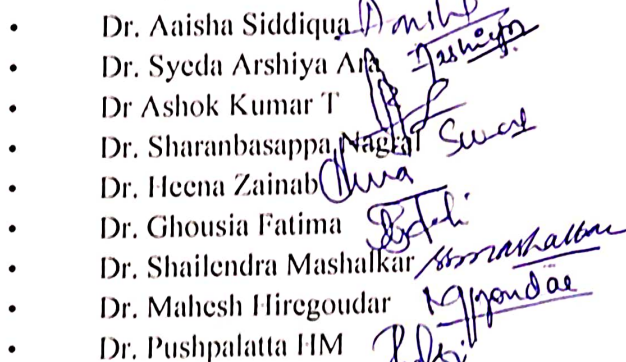 • Dr. Aaisha Siddiqua
• Dr. Syeda Arshiya Ara
• Dr Ashok Kumar T
• Dr. Sharanbasappa Nagral
• Dr. Heena Zainab
• Dr. Ghousia Fatima
• Dr. Shailendra Mashalkar
• Dr. Mahesh Hiregoudar
• Dr. Pushpalatta HM